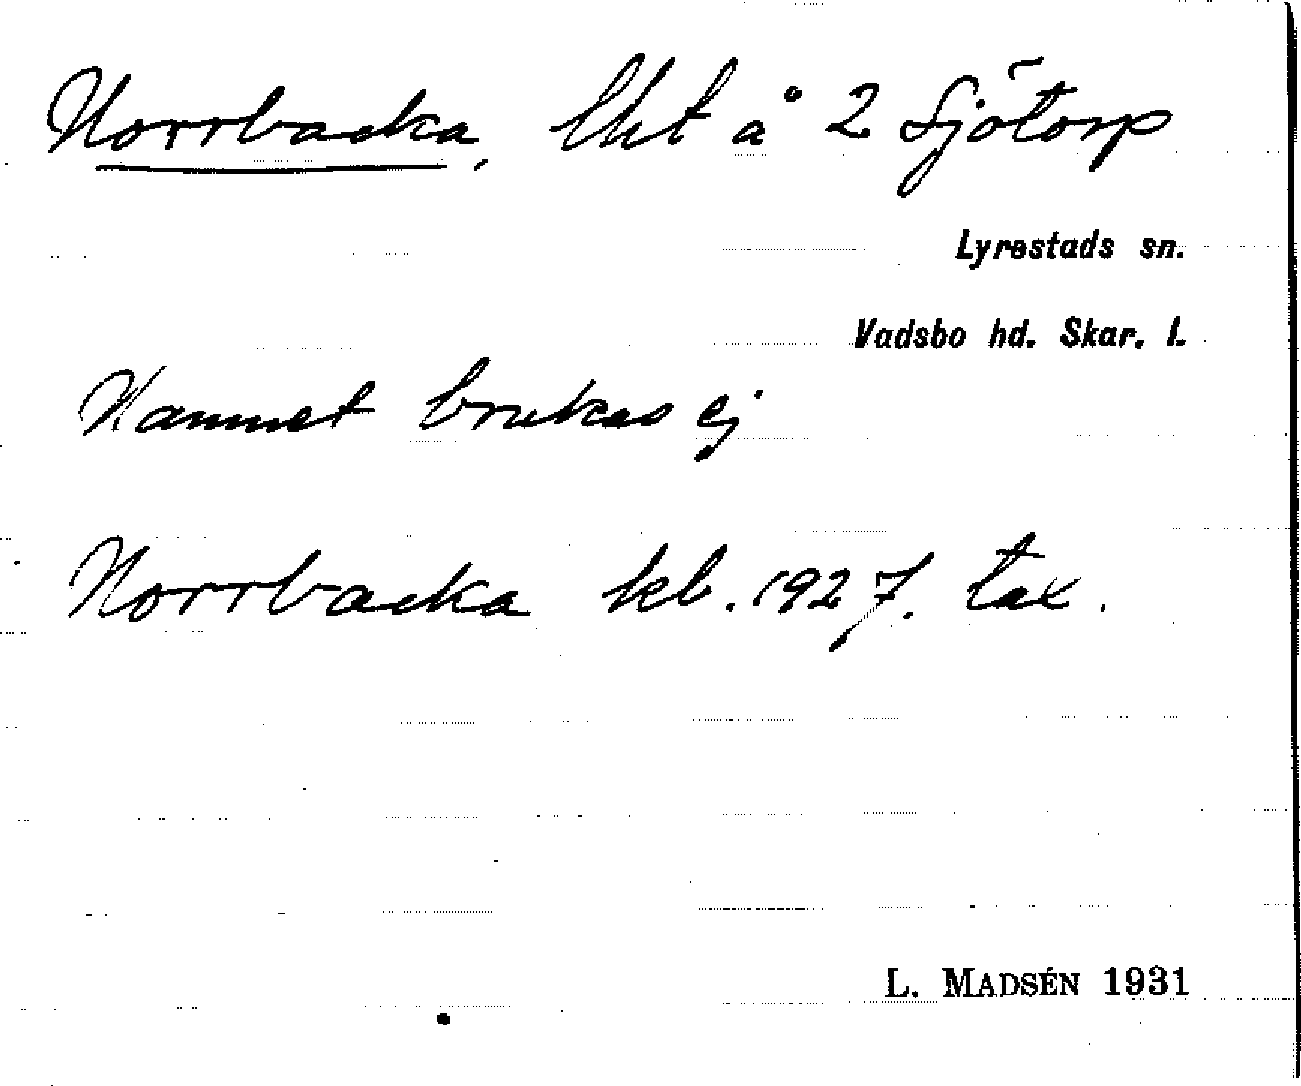 Norrbacka, lht å 2 Sjötorp
Lyrestads sn.
Vadsbo hd. Skar. l.
Namnet brukas ej
Norrbacka kb. 1927. tax.
L. MADSÉN 1931